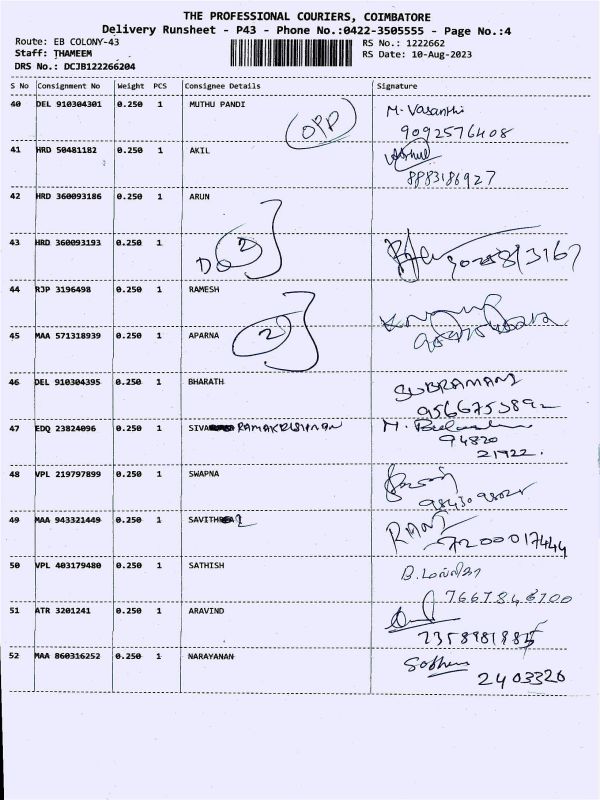 THE PROFESSIONAL COURIERS, COIMBATORE
Delivery Runsheet - P43 - Phone No.:0422-3505555 - Page No.:4
Route: EB COLONY-43 RS No.: 1222662
Staff: THAMEEM RS Date: 10-Aug-2023
DRS No.: DCJB122266204
S No Consignment No Weight PCS Consignee Details Signature
40 DEL 910304301 0.250 1 MUTHU PANDI M. Vasanthi
OPP 9092576408
41 HRD 50481182 0.250 1 AKIL
8883186927
42 HRD 360093186 0.250 1 ARUN
43 HRD 360093193 0.250 1
2
44 RJP 3196498 0.250 1 RAMESH
45 MAA 571318939 0.250 1 APARNA
2
46 DEL 910304395 0.250 1 BHARATH SUBRAMANI
47 EDQ 23824096 0.250 1 SIVA RAMAKRISHNAN M.
94820
21922.
48 VPL 219797899 0.250 1 SWAPNA
49 MAA 943321449 0.250 1 SAVITHRI RANI
7200017444
50 VPL 403179480 0.250 1 SATHISH
51 ATR 3201241 0.250 1 ARAVIND
52 MAA 860316252 0.250 1 NARAYANAN
2403320